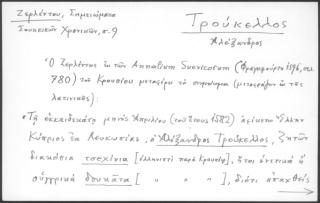 Ζερλέντου, Σημειώματα
Σουηκικῶν Χρονικῶν, σ. 9
Τρούκελλος
Ἀλέξανδρος
Ὁ Ζερλέντης ἐκ τῶν Annalium Suevicorum (Φραγκφούρτη 1596, σελ.
780) τοῦ Κρουσίου μεταφέρει τὸ σημείωμα (μεταφράζων ἐκ τῆς
λατινικῆς):
«Τῇ ὀκκαιδεκάτῃ μηνὸς Ἀπριλίου (τοῦ ἔτους 1582) ἀφίκετο Ἕλλην
Κύπριος ἐκ Λευκωσίας, ὁ Ἀλέξανδρος Τρούκελλος, ζητῶν
διακόσια τσεχίνια [ἑλληνιστὶ παρὰ Κρουσίῳ], ἤτοι ἑνετικὰ ἢ
οὑγγρικὰ δουκᾶτα [ " " " ], διότι ἁπαχθεὶς